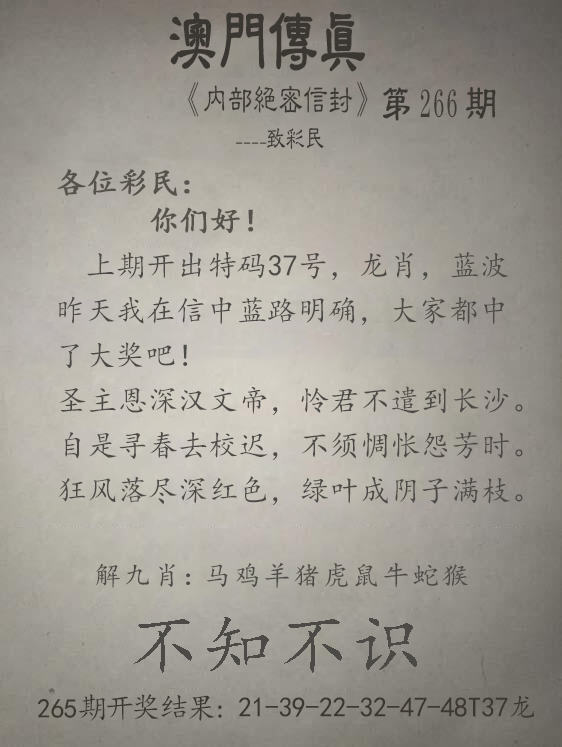 澳門傳真
《内部絕密信封》第266期
----致彩民
各位彩民：
你们好！
上期开出特码37号，龙肖，蓝波
昨天我在信中蓝路明确，大家都中
了大奖吧！
圣主恩深汉文帝，怜君不遣到长沙。
自是寻春去校迟，不须惆怅怨芳时。
狂风落尽深红色，绿叶成阴子满枝。
解九肖：马鸡羊猪虎鼠牛蛇猴
不知不识
265期开奖结果：21-39-22-32-47-48T37龙